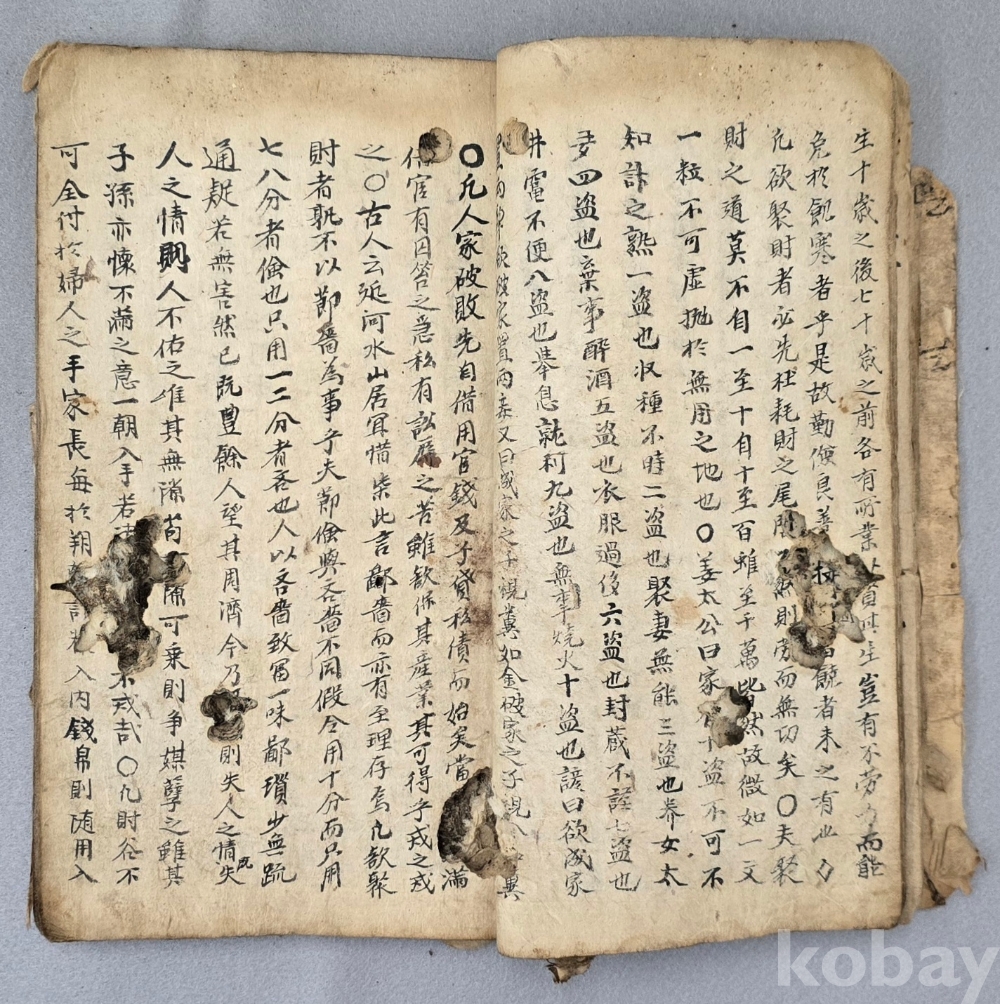 生十歲之後七十歲之前各有所業以資其生豈有不勞力而能
免於飢寒者乎是故勤儉良善 饒者未之有也〇
凡欲聚財者必先杜耗財之尾閭 然則勞而無切矣〇夫聚
財之道莫不自一至十自十至百雖至千萬皆然故微如一文
一粒不可虛抛於無用之地也〇姜太公曰家有十盜不可不
知計之熟一盜也收種不時二盜也聚妻無能三盜也养女太
多四盜也棄事醉酒五盜也衣服過侈六盜也封蔵不謹七盜也
井竈不便八盜也舉息就利九盜也無事燒火十盜也諺曰欲成家
置兩 欲破家置兩妻又曰成家之子視糞如金破家之子視金 糞
〇凡人家破敗先自借用官錢及予貸私債而始矣當 滿
官有囚笞之急私有訟 之苦雖欲保其產業其可得乎戒之戒
之〇古人云延河水山居冝惜柴此言鄙嗇而亦有至理存焉凡欲聚
財者孰不以節嗇為事乎夫節儉與吝嗇不同假令用十分而只用
七八分者儉也只用一二分者吝也人以吝嗇致冨一味鄙瑣少無䟽
通疑若無害然已既豊餘人望其周濟今乃 則失人之情失
人之情則人不佑之唯其無隙苟 隙可乗則争媒孽之雖其
子孫亦懷不滿之意一朝入手若 不戒哉〇凡財谷不
可全付於婦人之手家長每於朔 計 入内錢帛則随用入
kobay